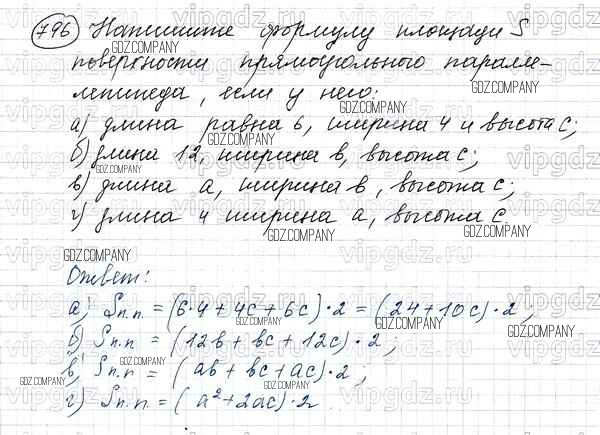 796 Напишите формулу площади S
поверхности прямоугольного паралле-
лепипеда, если у него:
а) длина равна 6, ширина 4 и высота c;
б) длина 12, ширина b, высота c;
в) длина a, ширина b, высота c;
г) длина 4 ширина a, высота c.
Ответ:
а) Sп.п. = (6·4+4c+6c)·2 = (24+10c)·2;
б) Sп.п = (12b+bc+12c)·2;
в) Sп.п = (ab+bc+ac)·2;
г) Sп.п. = (a²+2ac)·2
vipgdz.ru
GDZ.COMPANY